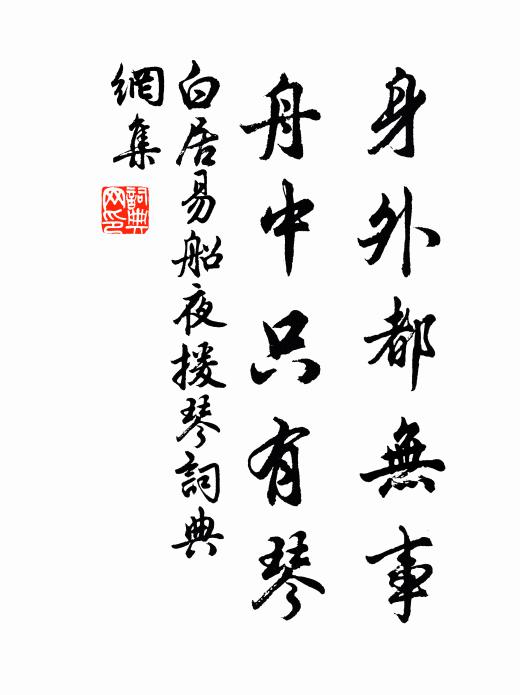 身外都無事
舟中只有琴
白居易船夜援琴詞典
網集
詞典網印